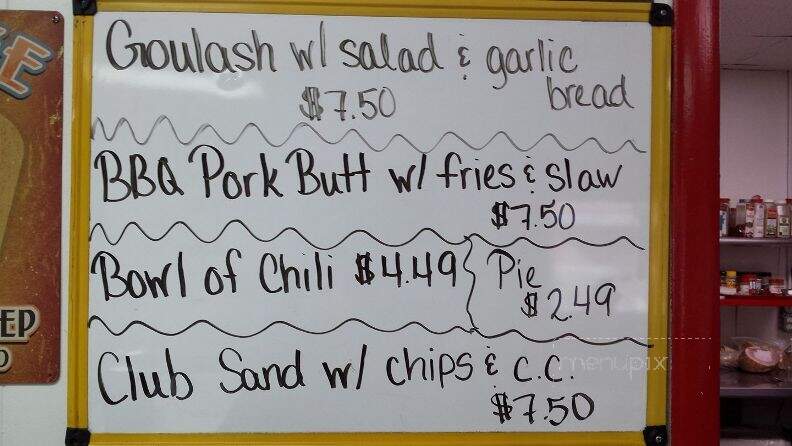 Goulash w/ salad & garlic
bread
$7.50
BBQ Pork Butt w/ fries & slaw
$7.50
Bowl of Chili $4.49
Pie
$2.49
Club Sand w/ chips & C.C.
$7.50
menupix
EP